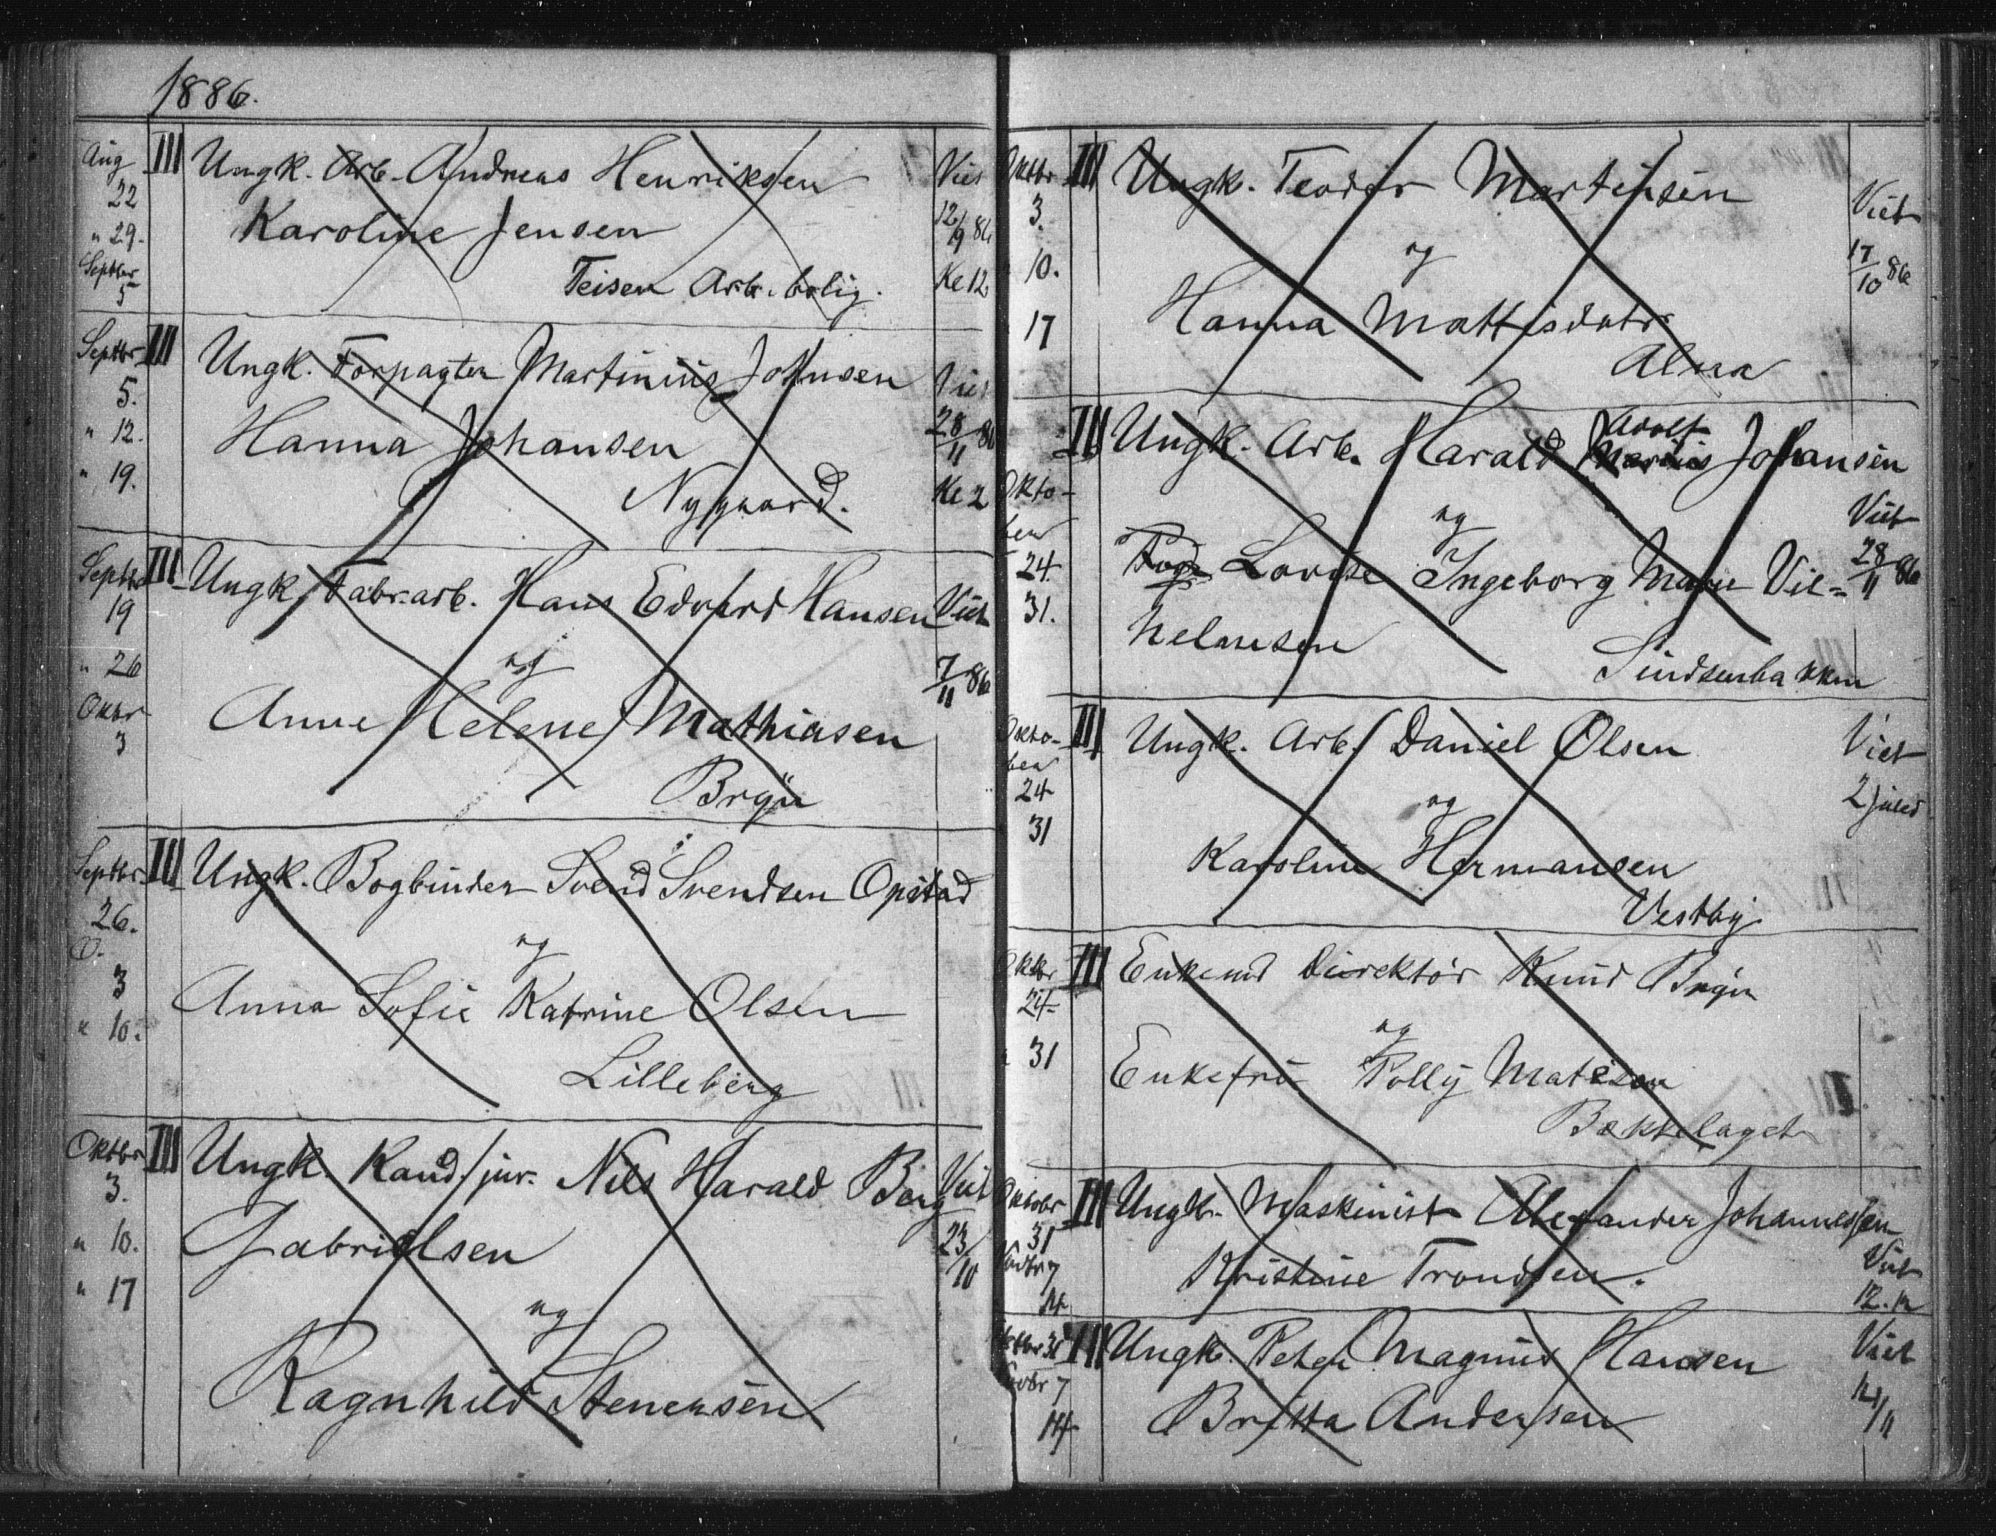 1886.
Aug III Ungk. Arb. Andreas Henriksen Viet
22 12/9 86
" 29. Karoline Jensen
Septbr 5 Teisen Arb. bolig. Kl 12
Septbr III Ungk. Forpagter Martinius Johnsen Viet
5.
" 12. Hanna Johansen 28/11 86
" 19. Nygaard. Kl 2
Septbr III Ungk. Fabr.arb. Hans Edvard Hansen Viet
19
" 26 og 7/11 86
Oktbr 3 Anne Helene Mathiasen
Bryn
Septbr. III Ungk. Bogbinder Svend Svendsen Opstad
26.
O. og
3 Anna Sofie Katrine Olsen
" 10.
Lilleberg
Oktbr III Ungk. Kand. jur. Nils Harald Berg Viet
3.
" 10. Gabrielsen 23/10
" 17 og
Ragnhild Stenersen
Oktbr III Ungk. Teodor Martinsen Viet
3. og 17/10 86
" 10.
17 Hanna Mattisdatr
Alna
III Ungk. Arb. Harald Adolf Johansen
Okto- og Viet
ber 28/11 86
24. Lovise Ingeborg Marie Vil=
31. helmsen
Sindsenbakken
Okto- III Ungk. Arb. Daniel Olsen Viet
ber
24 og 2 juled
31 Karoline Hermansen
Vestby
Oktbr III Enkemd Direktør Knud Bryn
24 og
" 31 Enkefru Polly
Bækkelaget
Oktobr III Ungk. Maskinist Alexander Johannessen
31 Viet
Novbr 7 Kristine Trondsen.
14 12.
Oktbr 31 III Ungk. Peter Magnus Hansen Viet
Novbr 7
14 Britta Andersen